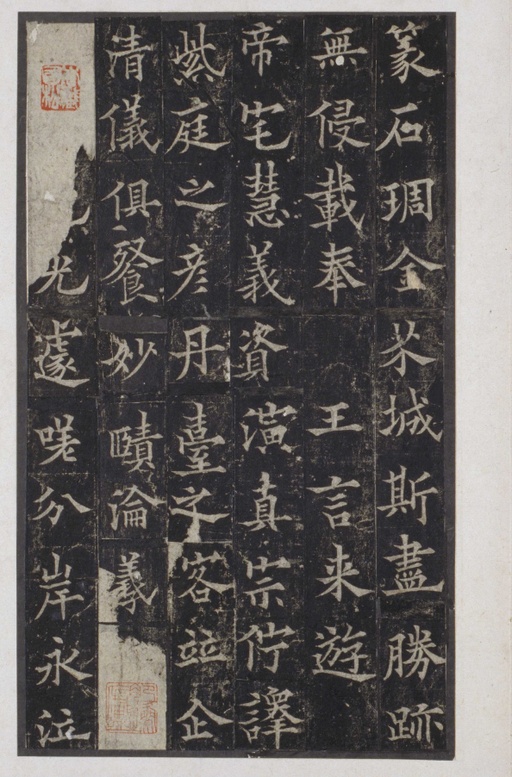 篆石琱金芥城斯盡勝跡
無侵載奉王言来遊
帝宅慧義資演真宗佇譯
紫庭之彦丹臺客並企
清儀俱餐妙賾淪羲
光遽嗟分岸永泣